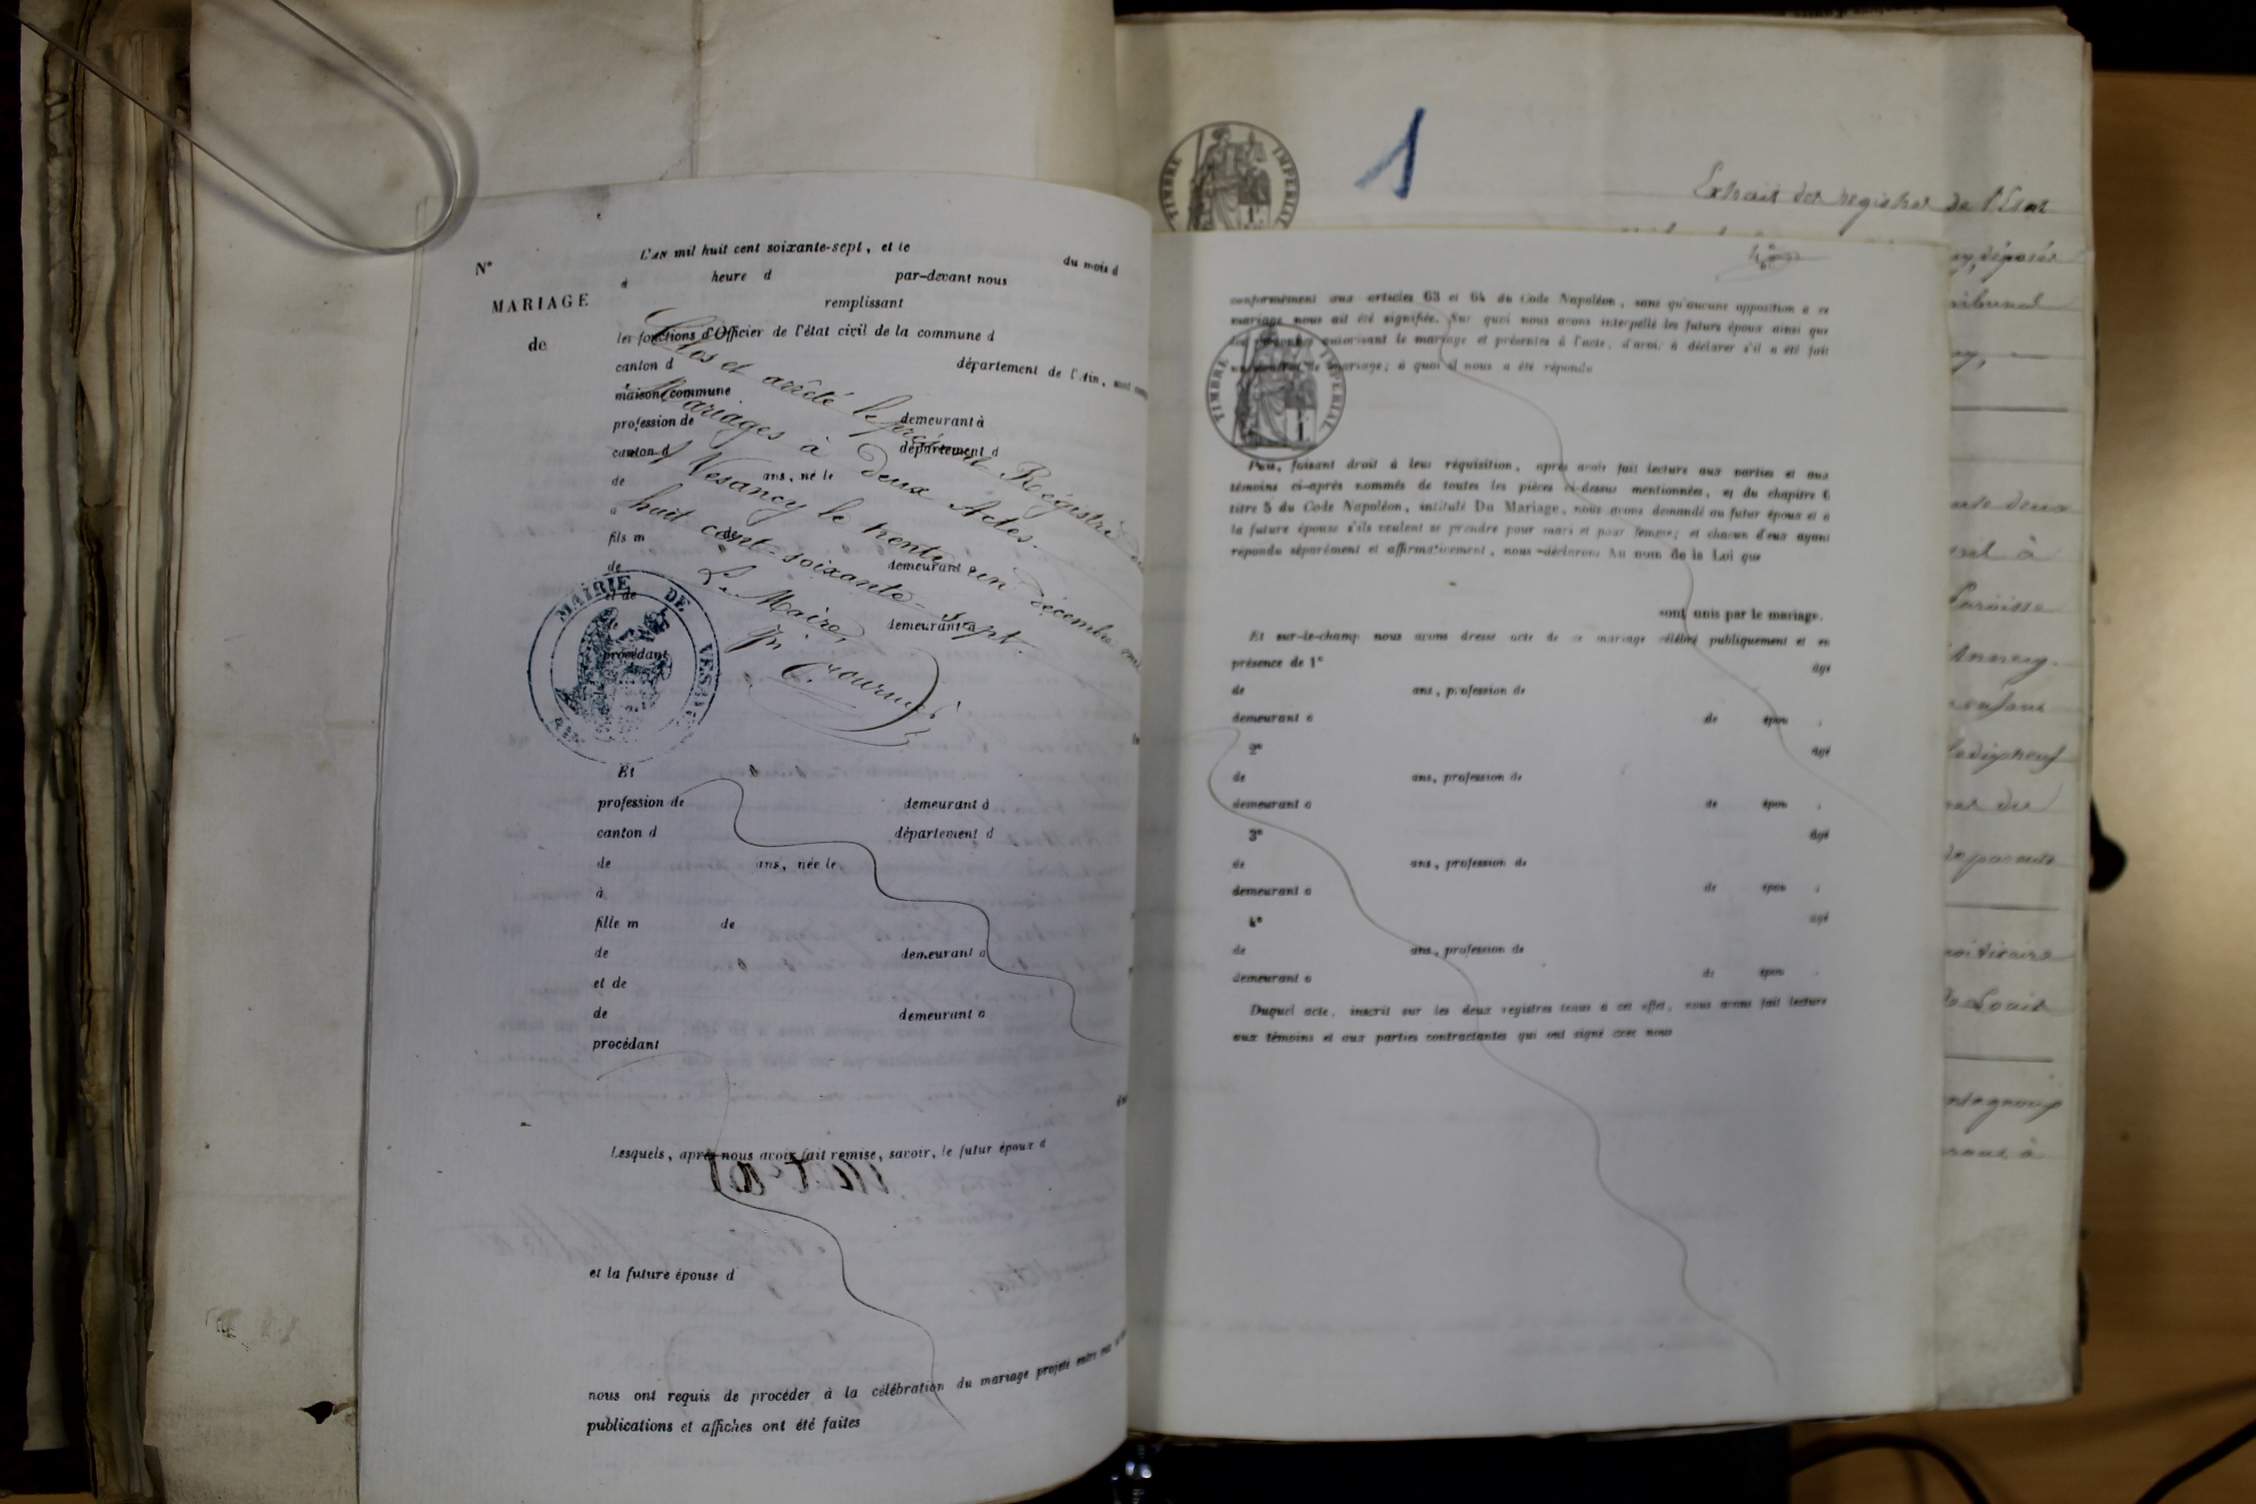 L'AN mil huit cent soixante-sept, et le du mois d
N°
à heure d par-devant nous
MARIAGE
remplissant
de
les fonctions d'Officier de l'état civil de la commune d
canton d département de l'Ain, sont
maison commune
profession de demeurant à
canton d département d
de ans, né le
à
fils m de
de demeurant
et de
de demeurant à
procédant
Clos et arrêté le présent Régistre
Mariages à deux Actes.
Vesancy le trente un décembre
huit cent-soixante-sept.
Le Maire,
MAIRIE DE VESANCY
AIN
Et
profession de demeurant à
canton d département d
de ans, née le
à
fille m de
de demeurant à
et de
de demeurant à
procédant
Lesquels, après nous avoir fait remise, savoir, le futur époux d
et la future épouse d
nous ont requis de procéder à la célébration du mariage projeté entre eux
publications et affiches ont été faites
1
TIMBRE IMPERIAL
Extrait des registres de l'Etat
conformément aux articles 63 et 64 du Code Napoléon, sans qu'aucune opposition à ce
mariage nous ait été signifiée. Sur quoi nous avons interpellé les futurs époux ainsi que
les personnes autorisant le mariage et présentes à l'acte, d'avoir à déclarer s'il a été fait
un contrat de mariage; à quoi il nous a été répondu
TIMBRE IMPERIAL
Puis, faisant droit à leur réquisition, après avoir fait lecture aux parties et aux
témoins ci-après nommés de toutes les pièces ci-dessus mentionnées, et du chapitre 6
titre 5 du Code Napoléon, intitulé Du Mariage, nous avons demandé au futur époux et à
la future épouse s'ils veulent se prendre pour mari et pour femme; et chacun d'eux ayant
répondu séparément et affirmativement, nous déclarons Au nom de la Loi que
sont unis par le mariage.
Et sur-le-champ nous avons dressé acte de ce mariage célébré publiquement et en
présence de 1° âgé
de ans, profession de
demeurant à de épou
2° âgé
de ans, profession de
demeurant à de épou
3° âgé
de ans, profession de
demeurant à de épou
4° âgé
de ans, profession de
demeurant à de épou
Duquel acte, inscrit sur les deux registres tenus à cet effet, nous avons fait lecture
aux témoins et aux parties contractantes qui ont signé avec nous